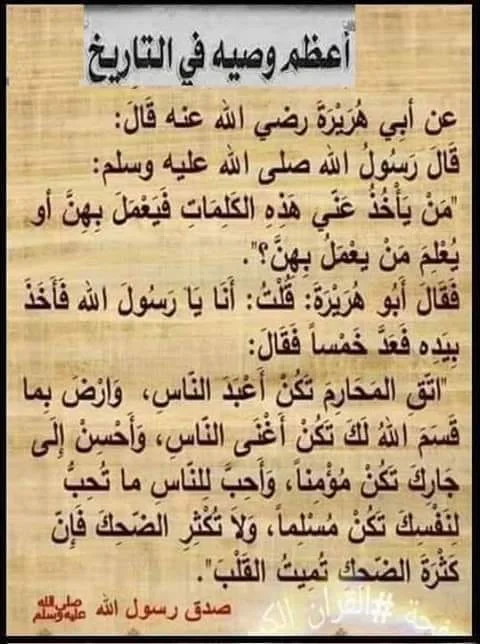 أعظم وصيه في التاريخ
عن أبي هُرَيْرَةَ رضي الله عنه قَالَ:
قَالَ رَسُولُ الله صلى الله عليه وسلم:
"مَنْ يَأْخُذُ عَنِّي هَذِهِ الكَلِمَاتِ فَيَعْمَلَ بِهِنَّ أو
يُعْلِمَ مَنْ يعْمَلُ بِهِنَّ؟".
فَقَالَ أَبُو هُرَيْرَةَ: قُلْتُ: أَنَا يَا رَسُولَ الله فَأَخَذَ
بِيَدِه فَعَدَّ خَمْساً فَقَالَ:
"اتَّقِ المَحَارِمَ تَكُنْ أَعْبَدَ النّاسِ، وَارْضَ بِما
قَسَمَ اللهُ لَكَ تَكُنْ أَغْنَى النّاسِ، وَأَحْسِنْ إِلَى
جَارِكَ تَكُنْ مُؤْمِناً، وَأَحِبَّ لِلنّاسِ ما تُحِبُّ
لِنَفْسِكَ تَكُنْ مُسْلِماً، وَلاَ تُكْثِرِ الضّحِكَ فَإِنّ
كَثْرَةَ الضّحِكِ تُمِيتُ القَلْبَ".
صدق رسول الله ﷺ
#القران